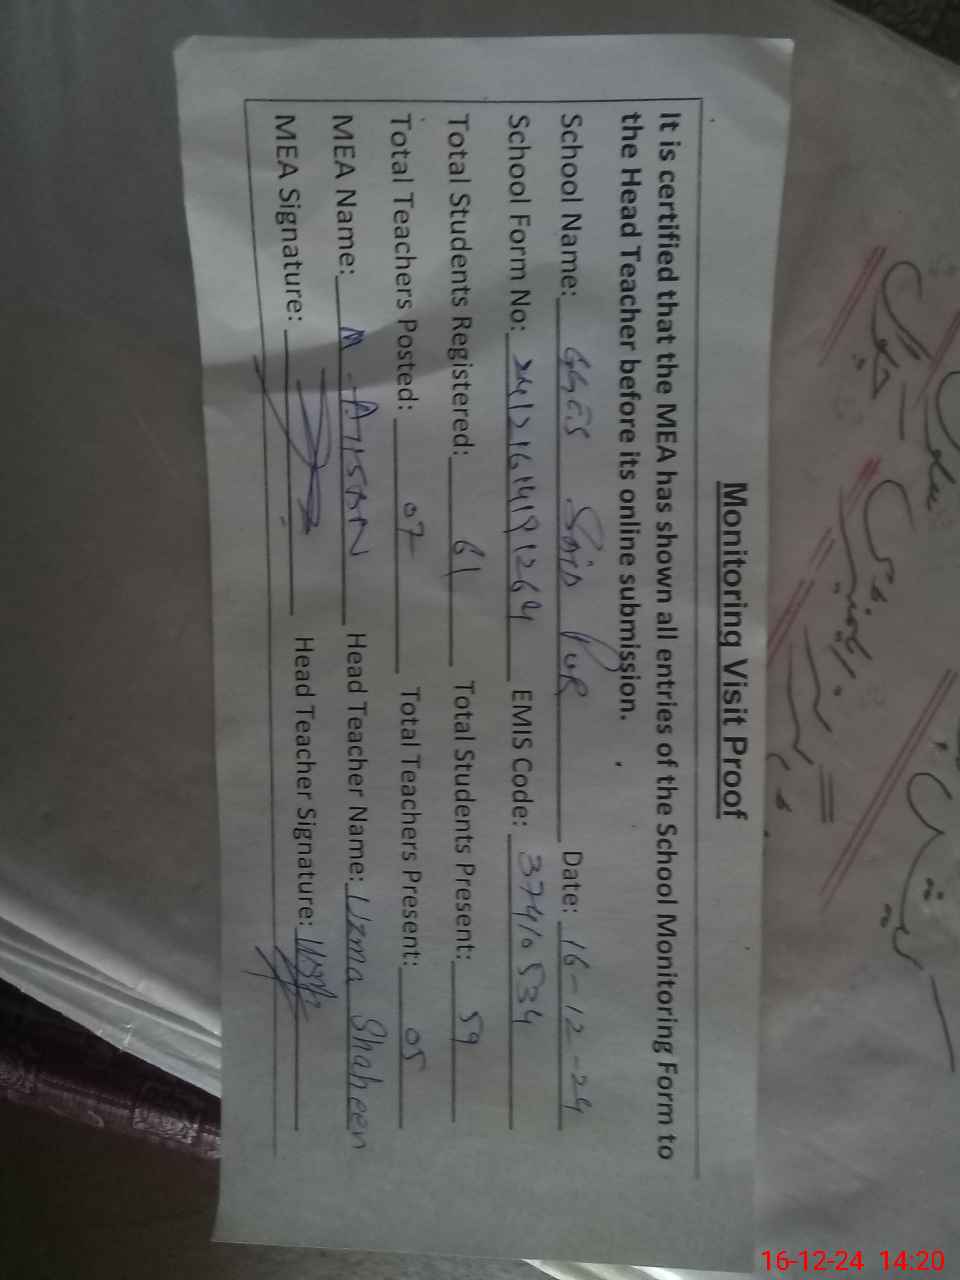 Monitoring Visit Proof
It is certified that the MEA has shown all entries of the School Monitoring Form to
the Head Teacher before its online submission.
School Name: GGES Said Pur Date: 16-12-24
School Form No: 24121614191264 EMIS Code: 37410534
Total Students Registered: 61 Total Students Present: 59
Total Teachers Posted: 07 Total Teachers Present: 05
MEA Name: M. Head Teacher Name: Uzma Shaheen
MEA Signature: Head Teacher Signature:
16-12-24 14:20